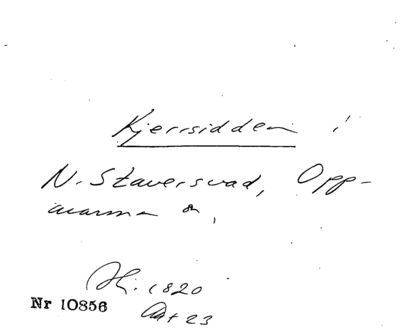 Kjerrsidden i
N. Staversvad, Opp-
marma
1820
Nr 10856
23